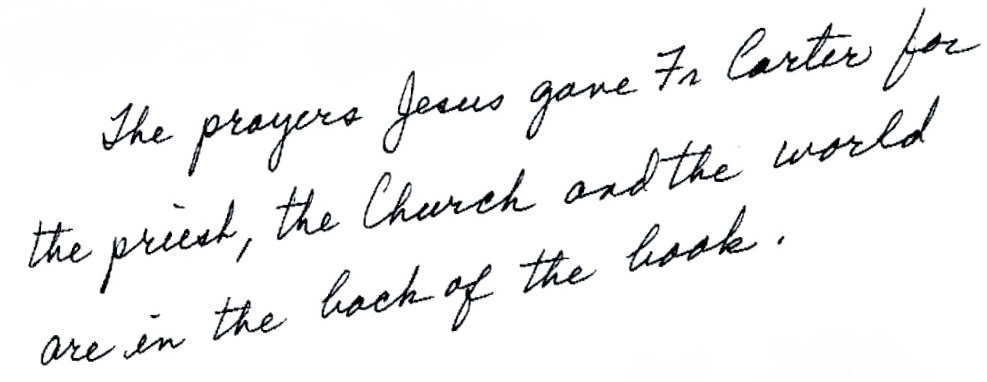 The prayers Jesus gave Fr Carter for
the priest, the Church and the world
are in the back of the book.